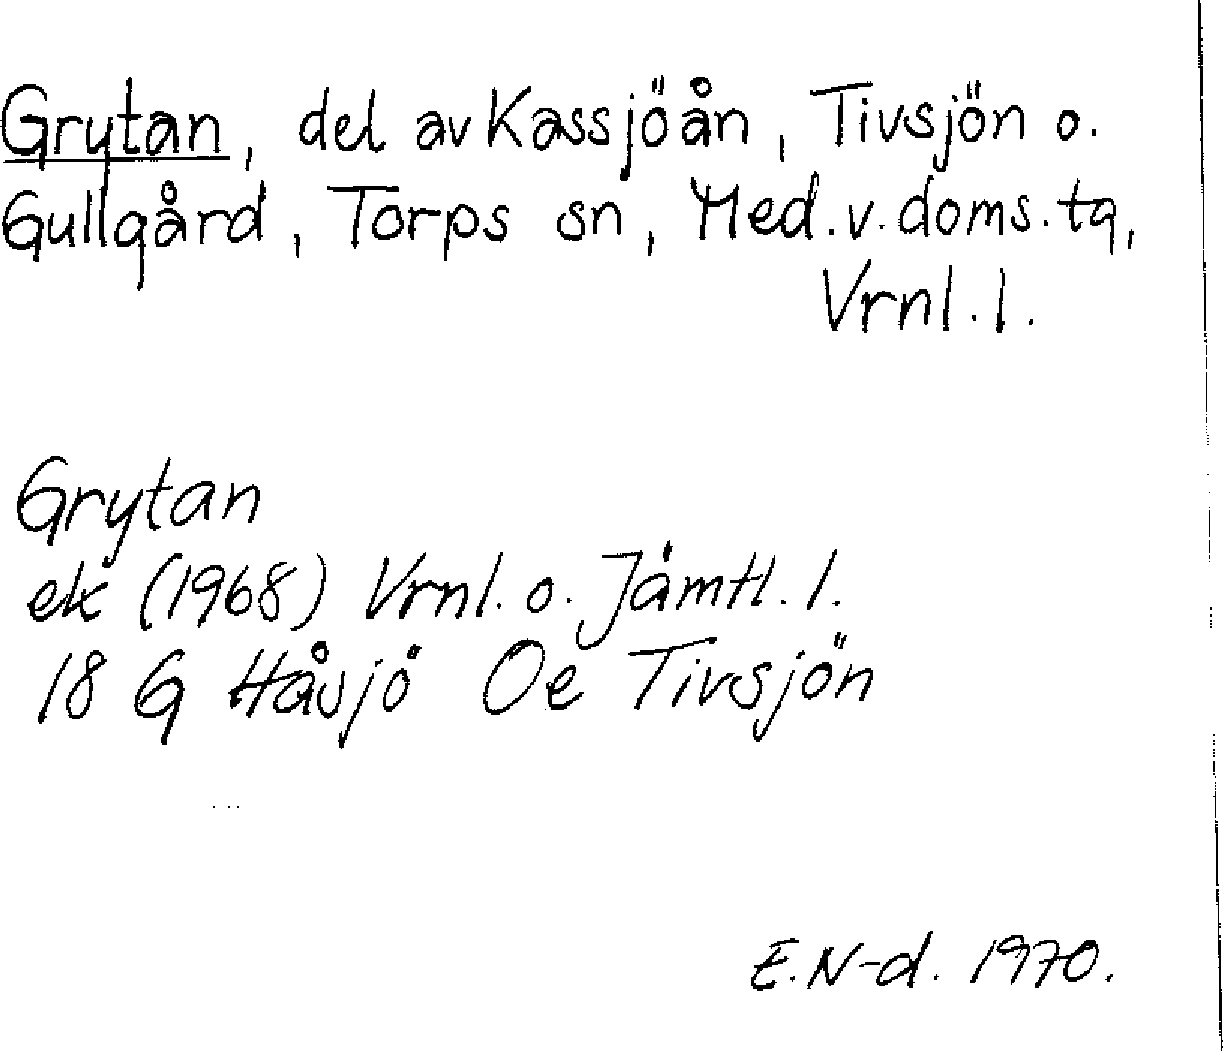 Grytan, del av Kassjöån, Tivsjön o.
Gullgård, Torps sn, Med.v.doms.tg,
Vrnl.l.
Grytan
ek (1968) Vrnl. o. Jämtl. l.
18 G Håsjö Oe Tivsjön
E.N-d. 1970.